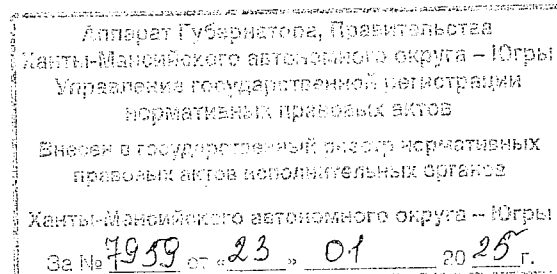 Аппарат Губернатора, Правительства
Ханты-Мансийского автономного округа – Югры
Управление государственной регистрации
нормативных правовых актов
Внесен в государственный реестр нормативных
правовых актов исполнительных органов
Ханты-Мансийского автономного округа – Югры
За № 7959 от «23» 01 2025 г.